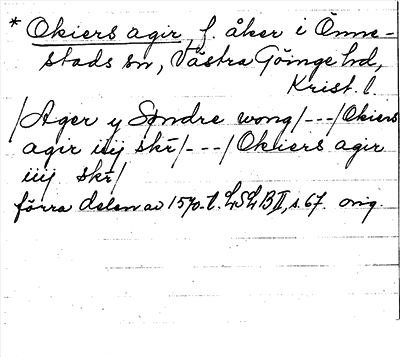 * Okiers agir, f. åker i Önne-
stads sn, Västra Göinge hd,
Krist. l.
/Ager y Søndre wong/---/Okiers
agir iiij skr/---/Okiers agir
iiij skr/
förra delen av 1570-t. LSLB II, s. 67. orig.